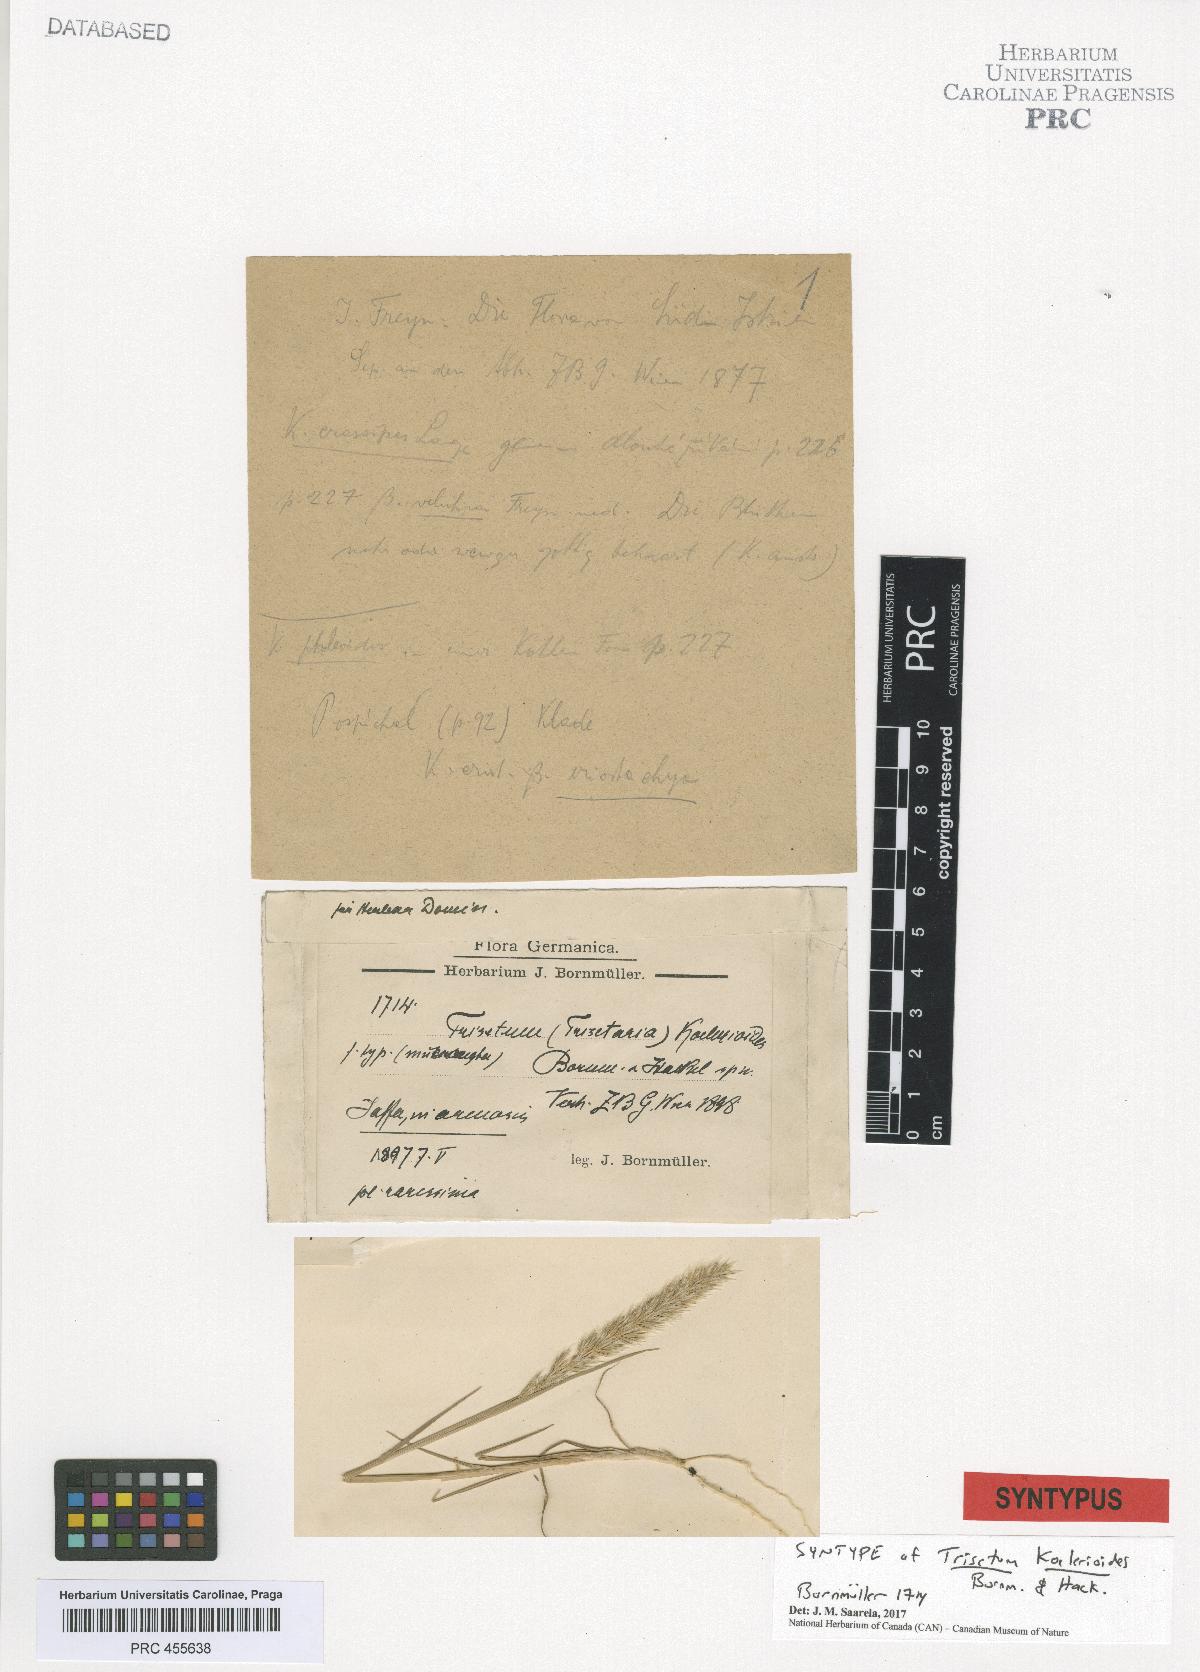 DATABASED
HERBARIUM
UNIVERSITATIS
CAROLINAE PRAGENSIS
PRC
1
J. Freyn. Die Flora von Istrien
den Abh. ZBG. Wien 1877
K. crassipes Lange p. 226
p. 227 β. velutina Freyn Die Blüthen
oder behaart (K.
K phleoides in einer Form p. 227
Pospichal (p. 92) Klade
K. β. eriostachya
Domin.
Flora Germanica.
Herbarium J. Bornmüller.
1714.
Trisetum (Trisetaria) Koelerioides
f. typ. Bornm. & Hackel
Jaffa, in arenosis Verh. ZBG. Wien 1898
1897 7. V leg. J. Bornmüller.
pl. rarissima
HERBARIUM UNIVERSITATIS
PRC
CAROLINAE PRAGENSIS
0 1 2 3 4 5 6 7 8 9 10
cm
copyright reserved
SYNTYPUS
SYNTYPE of Trisetum Koelerioides
Bornm. & Hack.
Bornmüller 1714
Det: J. M. Saarela, 2017
National Herbarium of Canada (CAN) – Canadian Museum of Nature
Herbarium Universitatis Carolinae, Praga
PRC 455638